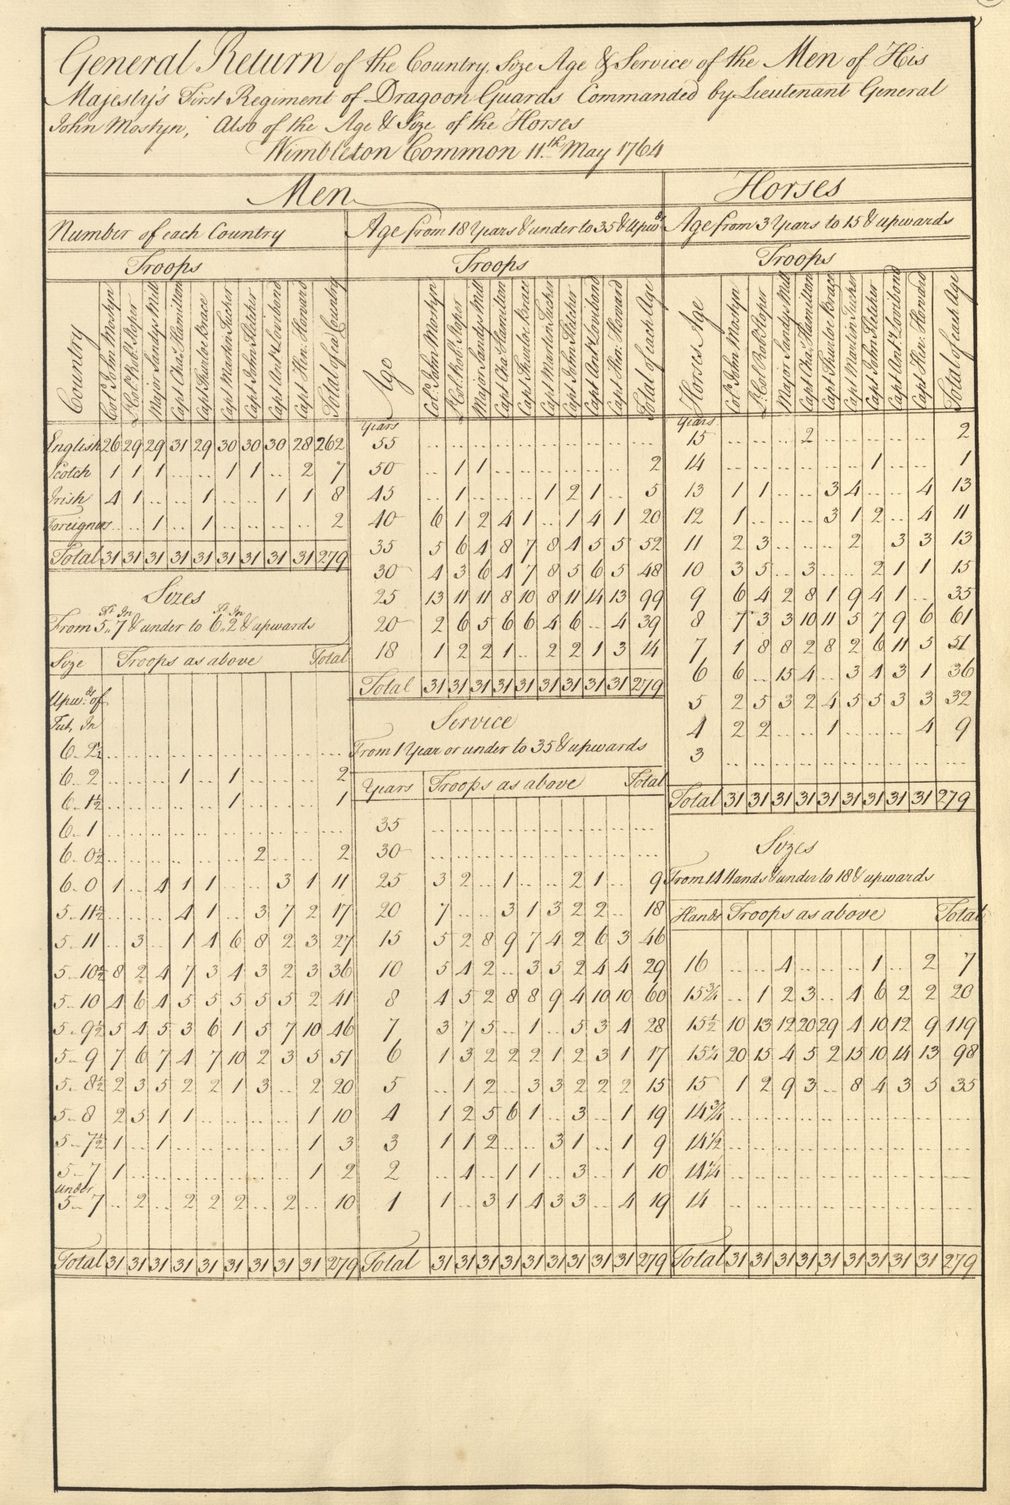 General Return of the Country, Size Age & Service of the Men of His
Majesty's First Regiment of Dragoon Guards Commanded by Lieutenant General
John Mostyn, Also of the Age & Size of the Horses
Wimbleton Common 11th May 1764
Men
Number of each Country
Troops
Country Colo. John Mostyn Lt Col. Robt. Sloper Major Sandys Mill Capt Chas. Hamilton Capt Searle Brace Capt Martin Tucher Capt John Fletcher Capt Ant. Lovibond Capt Hen. Howard Total of ea Country
English 26 29 29 31 29 30 30 30 28 262
Scotch 1 1 1 .. .. 1 1 .. 2 7
Irish 4 1 .. .. 1 .. .. 1 1 8
Foreigners .. .. 1 .. 1 .. .. .. .. 2
Total 31 31 31 31 31 31 31 31 31 279
Sizes
Ft. In Ft. In
From 5..7 & under to 6..2 & upwards
Size Troops as above Total
Upwds. of
Feet, In
6..2½ .. .. .. .. .. .. .. .. .. ..
6..2 .. .. .. 1 .. 1 .. .. .. 2
6..1½ .. .. .. .. .. 1 .. .. .. 1
6..1 .. .. .. .. .. .. .. .. .. ..
6..0½ .. .. .. .. .. .. 2 .. .. 2
6..0 1 .. 4 1 1 .. .. 3 1 11
5..11½ .. .. .. 4 1 .. 3 7 2 17
5..11 .. 3 .. 1 4 6 8 2 3 27
5..10½ 8 2 4 7 3 4 3 2 3 36
5..10 4 6 4 5 5 5 5 5 2 41
5..9½ 5 4 5 3 6 1 5 7 10 46
5..9 7 6 7 4 7 10 2 3 5 51
5..8½ 2 3 5 2 2 1 3 .. 2 20
5..8 2 5 1 1 .. .. .. .. 1 10
5..7½ 1 .. 1 .. .. .. .. .. 1 3
5..7 1 .. .. .. .. .. .. .. 1 2
under
5..7 .. 2 .. 2 2 2 .. 2 .. 10
Total 31 31 31 31 31 31 31 31 31 279
Age from 18 Years & under to 35 & Upwds
Troops
Age Colo. John Mostyn Lt Col. Robt. Sloper Major Sandys Mill Capt Chas. Hamilton Capt Searle Brace Capt Martin Tucher Capt John Fletcher Capt Ant. Lovibond Capt Hen. Howard Total of each Age
Years
55 .. .. .. .. .. .. .. .. .. ..
50 .. 1 1 .. .. .. .. .. .. 2
45 .. 1 .. .. .. 1 2 1 .. 5
40 6 1 2 4 1 .. 1 4 1 20
35 5 6 4 8 7 8 4 5 5 52
30 4 3 6 4 7 8 5 6 5 48
25 13 11 11 8 10 8 11 14 13 99
20 2 6 5 6 6 4 6 .. 4 39
18 1 2 2 1 .. 2 2 1 3 14
Total 31 31 31 31 31 31 31 31 31 279
Service
From 1 Year or under to 35 & upwards
Years Troops as above Total
35 .. .. .. .. .. .. .. .. .. ..
30 .. .. .. .. .. .. .. .. .. ..
25 3 2 .. 1 .. .. 2 1 .. 9
20 7 .. .. 3 1 3 2 2 .. 18
15 5 2 8 9 7 4 2 6 3 46
10 5 4 2 .. 3 5 2 4 4 29
8 4 5 2 8 8 9 4 10 10 60
7 3 7 5 .. 1 .. 5 3 4 28
6 1 3 2 2 2 1 2 3 1 17
5 .. 1 2 .. 3 3 2 2 2 15
4 1 2 5 6 1 .. 3 .. 1 19
3 1 1 2 .. .. 3 1 .. 1 9
2 .. 4 .. 1 1 .. 3 .. 1 10
1 1 .. 3 1 4 3 3 .. 4 19
Total 31 31 31 31 31 31 31 31 31 279
Horses
Age from 3 Years to 15 & upwards
Troops
Horses Age Colo. John Mostyn Lt Col. Robt. Sloper Major Sandys Mill Capt Chas. Hamilton Capt Searle Brace Capt Martin Tucher Capt John Fletcher Capt Ant. Lovibond Capt Hen. Howard Total of each Age
Years
15 .. .. .. 2 .. .. .. .. .. 2
14 .. .. .. .. .. .. 1 .. .. 1
13 1 1 .. .. 3 4 .. .. 4 13
12 1 .. .. .. 3 1 2 .. 4 11
11 2 3 .. .. .. 2 .. 3 3 13
10 3 5 .. 3 .. .. 2 1 1 15
9 6 4 2 8 1 9 4 1 .. 35
8 7 3 3 10 11 5 7 9 6 61
7 1 8 8 2 8 2 6 11 5 51
6 6 .. 15 4 .. 3 4 3 1 36
5 2 5 3 2 4 5 5 3 3 32
4 2 2 .. .. 1 .. .. .. 4 9
3 .. .. .. .. .. .. .. .. .. ..
Total 31 31 31 31 31 31 31 31 31 279
Sizes
From 14 Hands & under to 18 & upwards
Hands Troops as above Total
16 .. .. 4 .. .. .. 1 .. 2 7
15¾ .. 1 2 3 .. 4 6 2 2 20
15½ 10 13 12 20 29 4 10 12 9 119
15¼ 20 15 4 5 2 15 10 14 13 98
15 1 2 9 3 .. 8 4 3 5 35
14¾ .. .. .. .. .. .. .. .. .. ..
14½ .. .. .. .. .. .. .. .. .. ..
14¼ .. .. .. .. .. .. .. .. .. ..
14 .. .. .. .. .. .. .. .. .. ..
Total 31 31 31 31 31 31 31 31 31 279